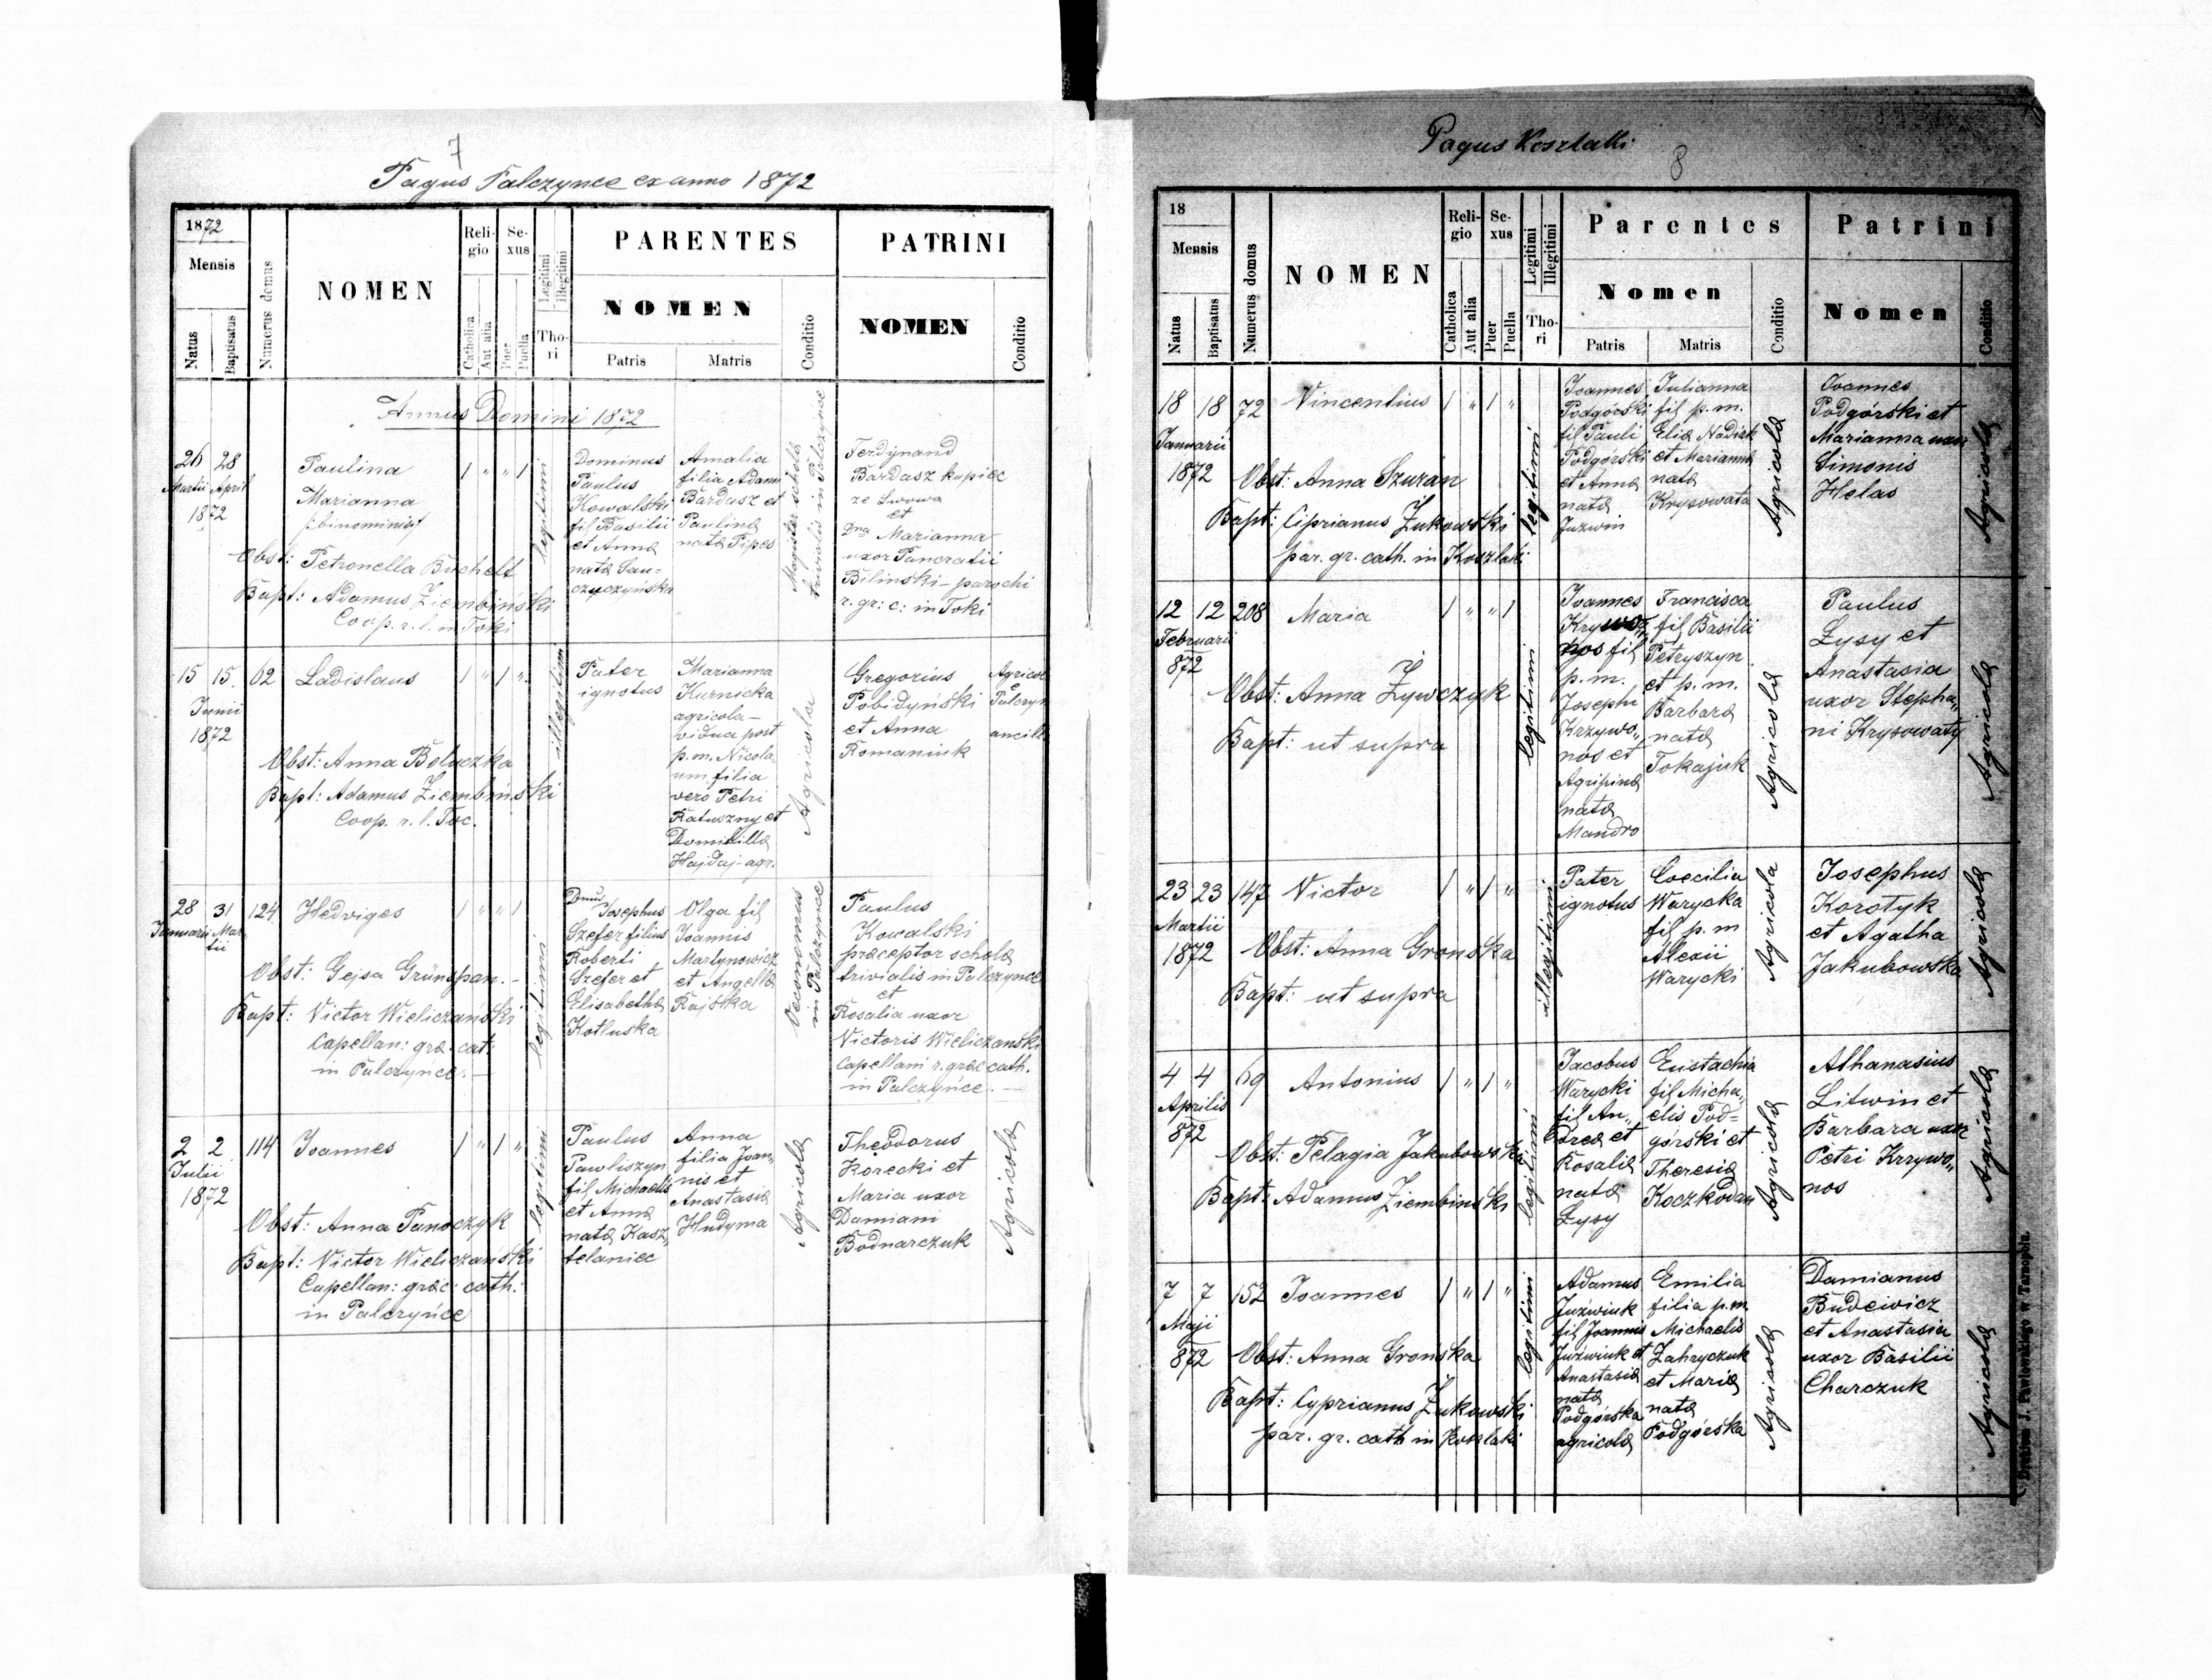 7
Pagus Palczynce ex anno 1872
1872
Mensis
Natus
Baptisatus
Numerus domus
NOMEN
Reli-
gio
Catholica
Aut alia
Se-
xus
Puer
Puella
Legitimi
Illegitimi
Tho-
ri
PARENTES
NOMEN
Patris
Matris
Conditio
PATRINI
NOMEN
Conditio
Annus Domini 1872
26 28
Martii April
1872
Paulina
Marianna
Obst: Petronella
Bapt: Adamus Ziembiński
Coop. r. l. in Toki
legitimi
Dominus
Paulus
Kowalski
fil Basilii
et Anna
nata Sau-
czyczyńska
Amalia
filia Adami
Bardasz et
Paulina
nata Pipes
Magister schola
trivialis in Palczynce
Ferdynand
Bardasz kupiec
ze Lwowa
et
Dna Marianna
uxor Pancratii
Bilinski - parochi
r. gr: c: in Toki
15 15 62 Ladislaus
Junii
1872
Obst: Anna Boluczka
Bapt: Adamus Ziembiński
Coop. r. l. Toc.
illegitimi
Pater
ignotus
Marianna
Kurnicka
agricola -
vidua post
p. m. Nicola
um filia
vero Petri
Ratuszny et
Domicilla
Hajdaj - agr.
Agricola
Gregorius
Pobidyński
et Anna
Romaniuk
Agricol
Palczyn
ancilla
28 31 124 Hedviges
Januarii Mar
tii
Obst: Gejsa Grünspan. -
Bapt: Victor Wieliczański
Capellan: græ. cat:
in Palczynce. -
legitimi
Josephus
Szefer filius
Roberti
Szefer et
Elisabetha
Kotluska
Olga fil
Joannis
Martynowicz
et Angella
Rajska
Oeconomus
in Palczynce
Paulus
Kowalski
præceptor schola
trivialis in Palczynce
et
Rosalia uxor
Victoris Wieliczanski
Capellani r. græc cath.
in Palczyńce. -
2 2 114 Joannes
Julii
1872
Obst: Anna Panaczyk
Bapt: Victor Wieliczanski
Capellan: græc: cath:
in Palczyńce
legitimi
Paulus
Pawliszyn
fil Michaelis
et Anna
nata Kasz,,
telaniec
Anna
filia Joan,,
nis et
Anastasia
Hudyma
Agricola
Theodorus
Korecki et
Maria uxor
Damiani
Bodnarczuk
Agricola
Pagus Koszlaki
8
18
Mensis
Natus
Baptisatus
Numerus domus
NOMEN
Reli-
gio
Catholica
Aut alia
Se-
xus
Puer
Puella
Legitimi
Illegitimi
Tho-
ri
Parentes
Nomen
Patris
Matris
Conditio
Patrini
Nomen
Conditio
18 18 72 Vincentius
Januarii
1872
Obst: Anna Szuran
Bapt: Ciprianus Żukowski
par. gr. cath. in Koszlaki
legitimi
Joannes
Podgórski
fil Pauli
Podgórski
et Anna
nata
Juzwin
Julianna
fil p. m.
Elia Nadiak
et Marianna
nata
Krysowata
Agricola
Joannes
Podgórski et
Marianna uxor
Simonis
Helas
Agricola
12 12 208 Maria
Februarii
872
Obst: Anna Żywczyk
Bapt: ut supra
legitimi
Joannes
nos fil
p. m.
Josephi
Krzywo,,
nos et
Agripina
nata
Mandro
Francisca
fil Basilii
Petryszyn
et p. m.
Barbara
nata
Tokajuk
Agricola
Paulus
Łysy et
Anastasia
uxor Stepha,,
ni Krysowaty
Agricola
23 23 147 Victor
Martii
1872
Obst: Anna Gronska
Bapt: ut supra
illegitimi
Pater
ignotus
Coecilia
Warycka
fil p. m
Alexii
Warycki
Agricola
Josephus
Korotyk
et Agatha
Jakubowska
Agricola
4 4 69 Antonius
Aprilis
872
Obst: Pelagia Jakubowska
Bapt: Adamus Ziembinski
legitimi
Jacobus
Warycki
fil An,,
drea et
Rosalia
nata
Łysy
Eustachia
fil Micha,,
elis Pod=
górski et
Theresia
Koczkodan
Agricola
Athanasius
Litwin et
Barbara uxor
Petri Krzywo,,
nos
Agricola
7 7 152 Joannes
Maji
872
Obst: Anna Grońska
Bapt: Cyprianus Żukowski
par. gr. cath in Koszlaki
legitimi
Adamus
Juzwiuk
fil Joannis
Juzwiuk et
Anastasia
nata
Podgórska
agricola
Emilia
filia p. m.
Michaelis
Zahryczuk
et Maria
nata
Podgórska
Agricola
Damianus
Budziwicz
et Anastasia
uxor Basilii
Charczuk
Agricola
Drukiem J. Pawłowskiego w Tarnopolu.